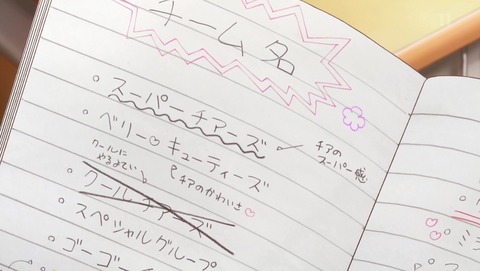 チーム名
スーパーチアーズ
チアの
スーパー感
ベリー♡キューティーズ
チアのかわいさ♡
クールに
やるみたい
クールチアーズ
スペシャルグループ
ゴーゴー